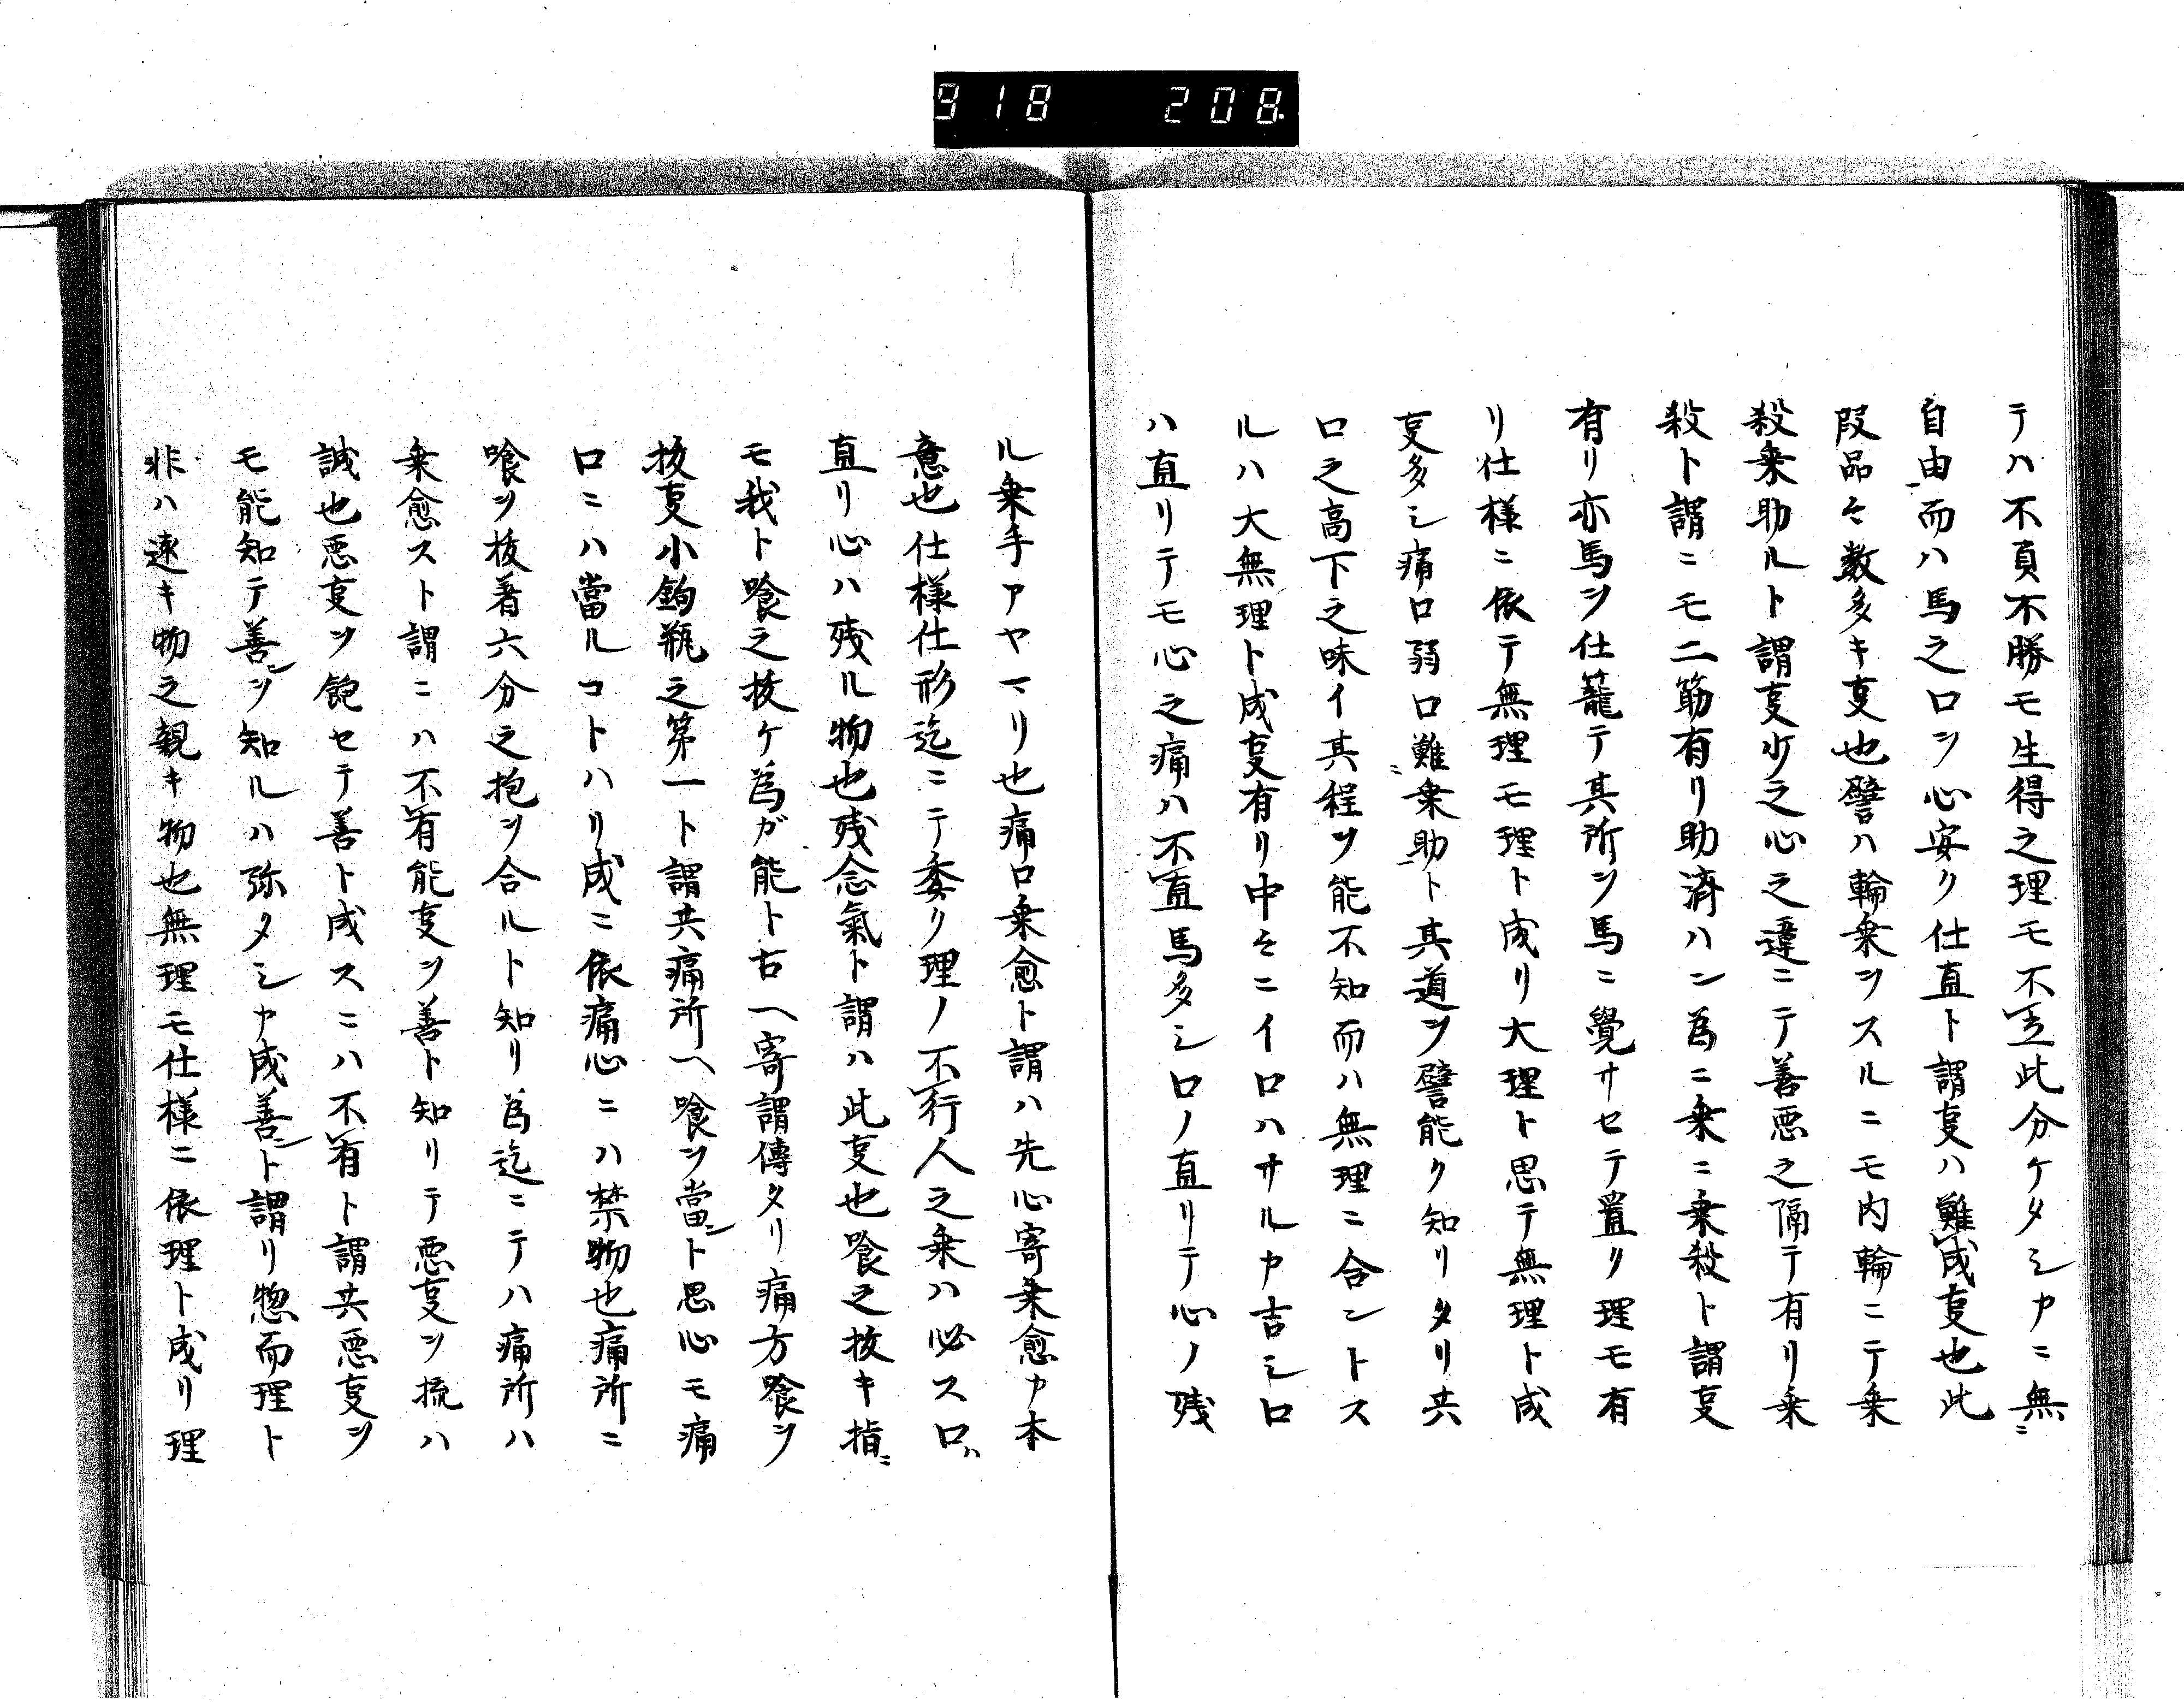 918 208.
テハ不負不勝モ生得之理モ不立此分ケタシカニ無ニ
自由而ハ馬之口ヲ心安ク仕直ト謂𠮷ハ難成𠮷也此
段品々数多キ𠮷也譬ハ輪乗ヲスルニモ内輪ニテ乗
殺乗助ルト謂𠮷少之心之違ニテ善悪之隔テ有リ乗
殺ト謂ニモ二筋有リ助済ハン為ニ乗ニ乗殺ト謂𠮷
有リ亦馬ヲ仕籠テ其所ヲ馬ニ覺サセテ置リ理モ有
リ仕様ニ依テ無理モ理ト成リ大理ト思テ無理ト成
𠮷多シ痛口弱口難ニ乗助ト其道ヲ譬能ク知リタリ共
口之高下之味イ其程ヲ能不知而ハ無理ニ合ントス
ルハ大無理ト成𠮷有リ中々ニイロハサルカ吉シ口
ハ直リテモ心之痛ハ不直馬多シ口ノ直リテ心ノ残
ル乗手アヤマリ也痛口乗愈ト謂ハ先心寄乗愈カ本
意也仕様仕形迄ニテ委ク理ノ不行人之乗ハ必ス口ハ
直リ心ハ残ル物也残念氣ト謂ハ此𠮷也喰之抜キ指ニ
モ我ト喰之抜ケ為ガ能ト古ヘ寄謂傳タリ痛方喰ヲ
抜𠮷小鉤瓶之第一ト謂共痛所ヘ喰ヲ當ント思心モ痛
口ニハ當ルコトハリ成ニ依痛心ニハ禁物也痛所ニ
喰ヲ抜着六分之抱ヲ合ルト知リ為迄ニテハ痛所ハ
乗愈スト謂ニハ不有能𠮷ヲ善ト知リテ悪𠮷ヲ撫ハ
誠也悪𠮷ヲ飽セテ善ト成スニハ不有ト謂共悪𠮷ヲ
モ能知テ善ンヲ知ルハ弥タシカ成善ント謂リ惣而理ト
非ハ遠キ物之親キ物也無理モ仕様ニ依理ト成リ理